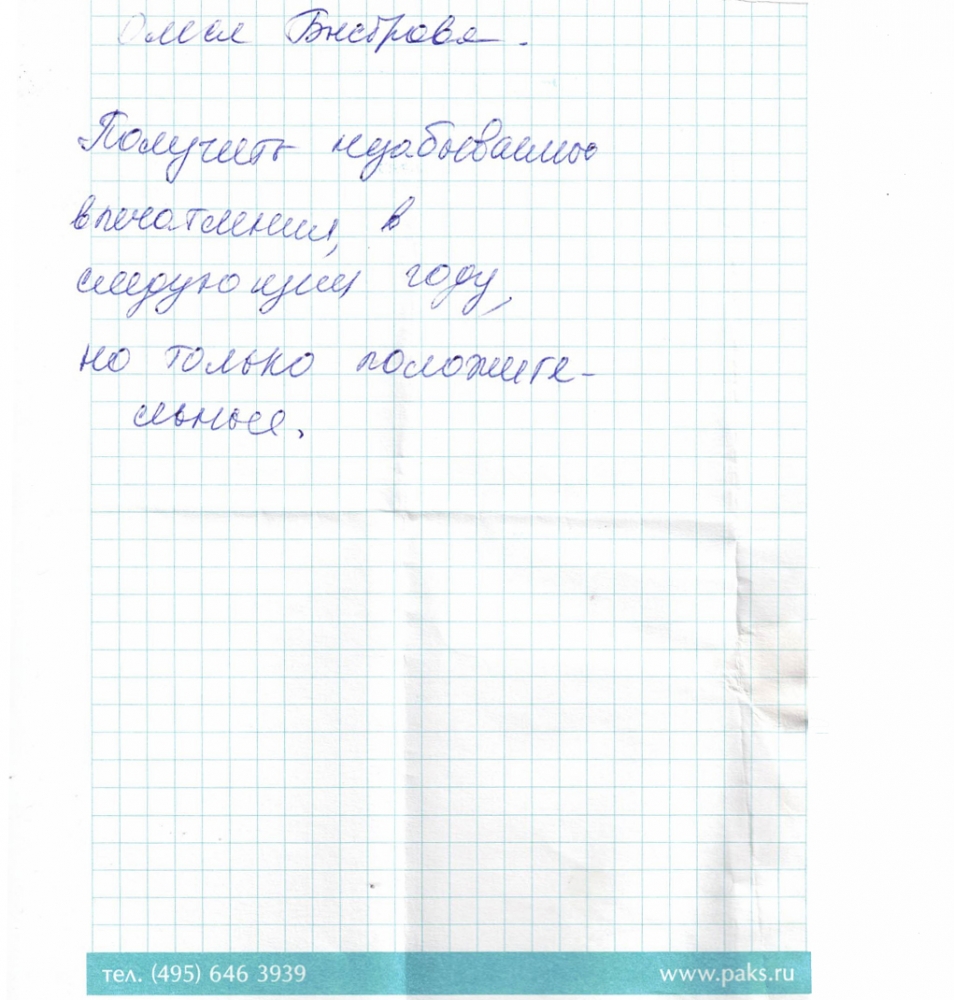 Олеся Быстрова.
Получить незабываемые
впечатления, в
следующем году,
но только положите-
льные.
тел. (495) 646 3939
www.paks.ru